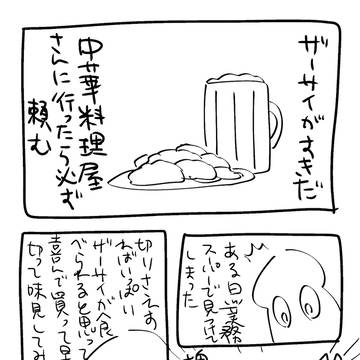 ザーサイがすきだ
中華料理屋
さんに行ったら必ず
頼む
ある日業務
スーパーで見つけて
しまった
切りさえす
ればいっぱい
ザーサイが食
べられると思って
喜んで買って
切って味見してみ